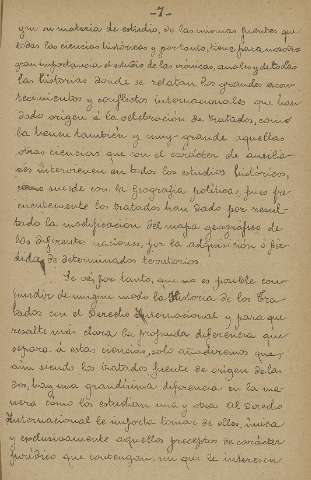 -7-
gun su materia de estudio, de las mismas fuentes que
todas las ciencias históricas y por tanto, tiene para nosotros
gran importancia el estudio de las crónicas, anales y de todas
las historias donde se relatan los grandes acon-
tecimientos y conflictos internacionales que han
dado origen á la celebración de tratados, como
la tienen también y muy grande aquellas
otras ciencias que con el carácter de auxilia-
res intervienen en todos los estudios históricos,
sucede con la Geografía política, pues fre-
cuentemente los tratados han dado por resul-
tado la modificación del mapa geográfico de
las diferente naciones, por la adquisición ó per-
dida de determinados territorios.
Se vé, por tanto, que no es posible con-
fundir de ningun modo la Historia de los Tra-
tados con el Derecho Internacional y para que
resalte más clara la profunda diferencia que
separa á estas ciencias, solo añadiremos que
aun siendo los tratados fuente de origen de las
dos, hay una grandisima diferencia en la ma-
nera como los estudian una y otra. Al Derecho
Internacional le importa tomar de ellos, única
y exclusivamente aquellos preceptos de carácter
jurídico que contengan, sin que le interesen